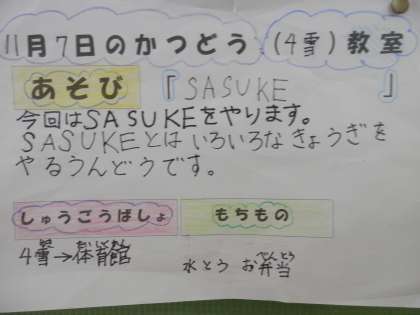 11月7日のかつどう (4雪) 教室
あそび 『SASUKE 』
今回はSASUKEをやります。
SASUKEとはいろいろなきょうぎを
やるうんどうです。
しゅうごうばしょ もちもの
4雪→体育館 水とう お弁当